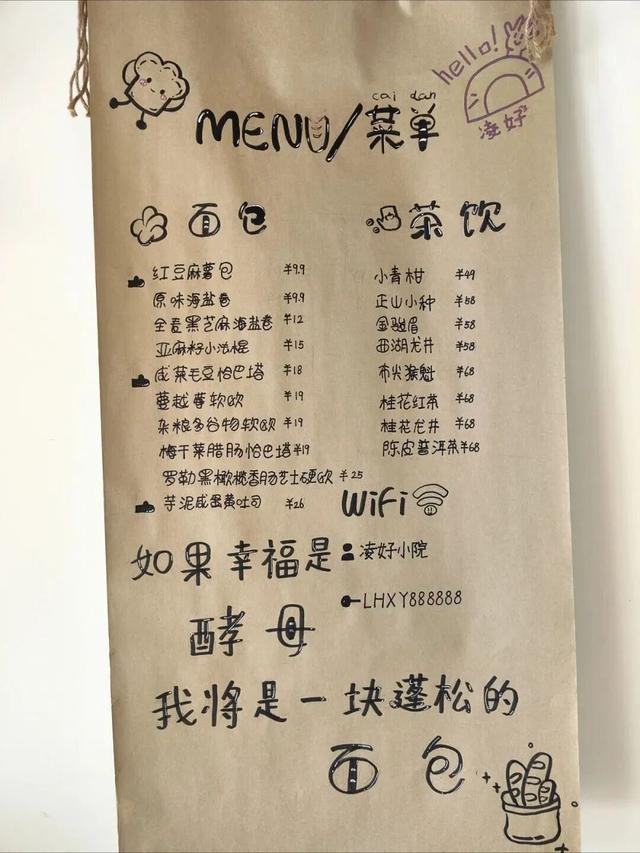 hello!
凌好
cai dan
MENU/菜单
面包
红豆麻薯包 ¥9.9
原味海盐卷 ¥9.9
全麦黑芝麻海盐卷 ¥12
亚麻籽小法棍 ¥15
咸菜毛豆恰巴塔 ¥18
蔓越莓软欧 ¥19
杂粮多谷物软欧 ¥19
梅干菜腊肠恰巴塔 ¥19
罗勒黑橄榄香肠芝士硬欧 ¥25
芋泥咸蛋黄吐司 ¥26
茶饮
小青柑 ¥49
正山小种 ¥58
金骏眉 ¥58
西湖龙井 ¥58
布尖猴魁 ¥68
桂花红茶 ¥68
桂花龙井 ¥68
陈皮普洱茶 ¥68
WiFi
凌好小院
LHXY888888
如果幸福是
酵母
我将是一块蓬松的
面包